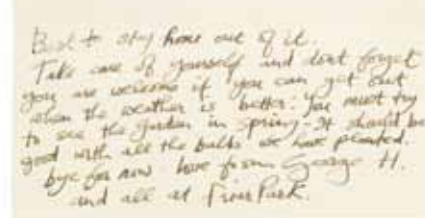 Best to stay home out of it.
Take care of yourself and dont forget
you are welcome if you can get out
when the weather is better. You must try
to see the garden in spring. It should be
good with all the bulbs we have planted.
bye for now love from George H.
and all at Friar Park.